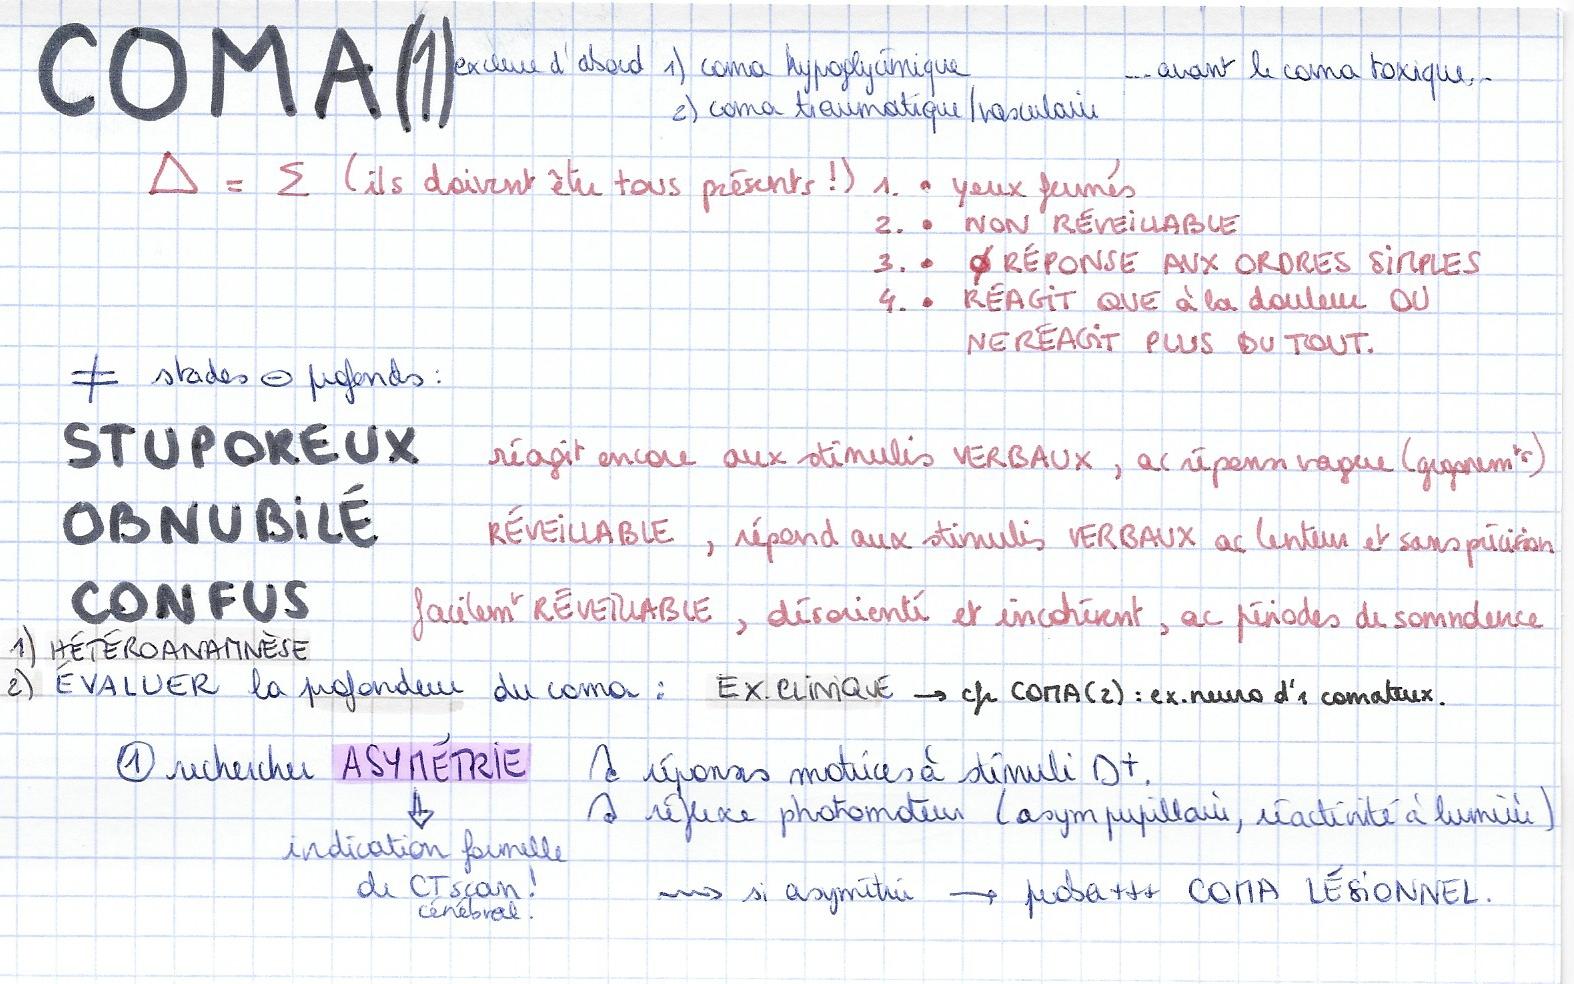 COMA (1) exclure d'abord 1) coma hypoglycémique ... avant le coma toxique...
2) coma traumatique/vasculaire
Δ = Σ (ils doivent être tous présents !) 1. • yeux fermés
2. • NON RÉVEILLABLE
3. • ∅ RÉPONSE AUX ORDRES SIMPLES
4. • RÉAGIT QUE à la douleur OU
NE RÉAGIT PLUS DU TOUT.
≠ stades ⊖ profonds :
STUPOREUX réagit encore aux stimulis VERBAUX, ac réponse vague (grognemts)
OBNUBILÉ RÉVEILLABLE, répond aux stimulis VERBAUX ac lenteur et sans précision
CONFUS facilemt RÉVEILLABLE, désorienté et incohérent, ac périodes de somndence
1) HÉTÉROANAMNÈSE
2) ÉVALUER la profondeur du coma : EX. CLINIQUE → cfr COMA (2) : ex. neuro d'1 comateux.
① rechercher ASYMÉTRIE réponses motrices à stimuli D+.
réflexe photomoteur (asym pupillaire, réactivité à lumière)
indication formelle
de CTscan !
cérébral.
si asymétrie → proba +++ COMA LÉSIONNEL.